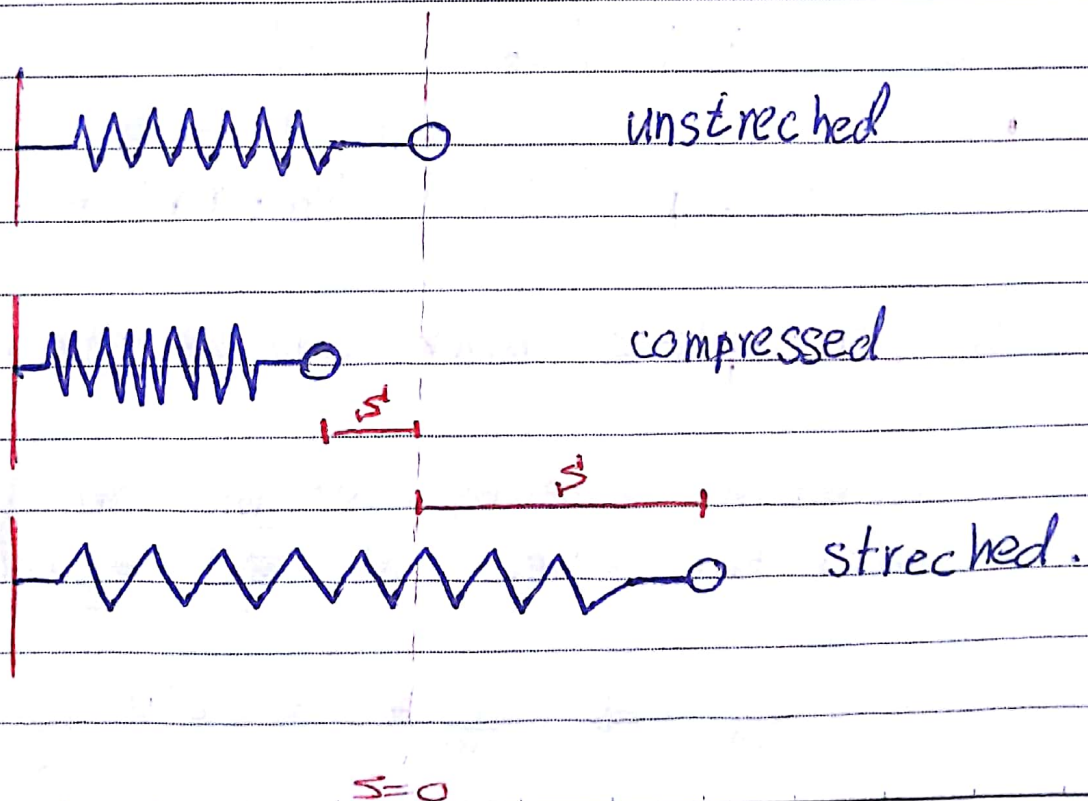 unstreched
compressed
S
S
streched.
S=0